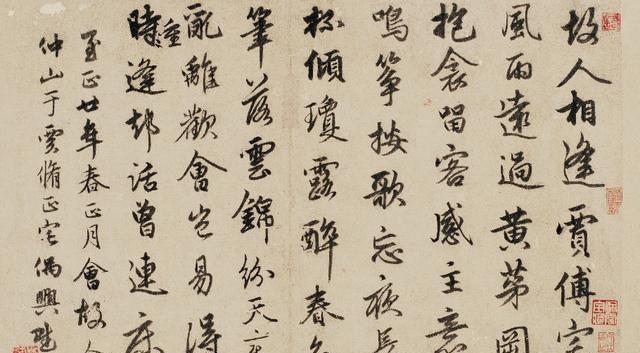 故人相逢賈傅宅
風雨遠過黃茅岡
抱衾留客感主意
鳴箏按歌忘夜長
杯傾瓊露醉春
筆落雲錦紛天
亂離歡會豈易得
時重逢却話曾連床
至正廿年春正月會故人
仲山于雲脩正宅偶興